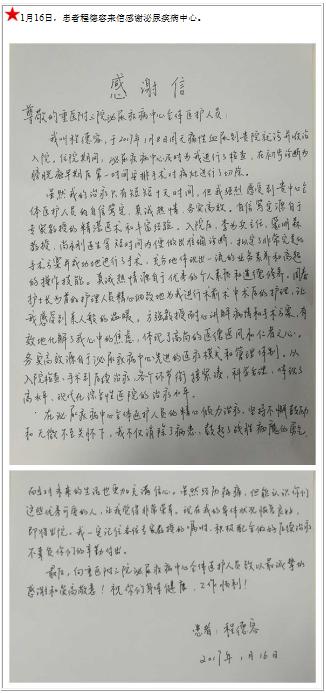 1月16日，患者程德容来信感谢泌尿疾病中心。
感谢信
尊敬的重医附三院泌尿疾病中心全体医护人员：
我叫程德容，于2017年1月8日因无痛性血尿到贵院就诊并收治
入院。住院期间，泌尿疾病中心及时为我进行了检查，在初步诊断为
膀胱癌早期后第一时间安排手术对病灶进行了切除。
虽然我的治疗只有短短十天时间，但我强烈感受到贵中心全
体医护人员的自信笃定、真诚热情、务实高效。自信笃定源自于
专家教授的精湛医术和丰富经验。入院后，
教授、尚 医生等短时间为便做出准确诊断，拟定了非常完善的
手术方案并成功地进行了手术，充分体现出一流的业务素养和高超
的操作技能。真诚热情源自于优秀的个人素质和道德修养。周
护士长为首的护理人员精心细致地为我进行术前术中术后的护理，让
我感受到亲人般的温暖。方强教授耐心讲解病情和手术方案，有
效地化解了我心中的焦虑，体现了高尚的医德医风和仁者之心。
务实高效源自于泌尿疾病中心先进的医疗模式和管理体制。从
入院检查、手术到后续治疗，各个环节衔接紧凑，科学合理，体现了
高水平、现代化综合性医院的治疗水平。
在泌尿疾病中心全体医护人员的精心倾力治疗、坚持不懈鼓励
和无微不至关怀下，我不仅消除了病患，鼓起了战胜病魔的勇气
而且对未来的生活也更加充满信心。虽然经历病痛，但能认识你们
这些优秀可爱的人，让我觉得非常荣幸。现在我的身体状况恢复良好，
即将出院。我一定记住各位专家教授的嘱咐，积极配合做好后续治疗
不辜负你们的辛勤付出。
最后，向重医附三院泌尿疾病中心全体医护人员致以最诚挚的
感谢和崇高敬意！祝你们身体健康，工作顺利！
患者：程德容
2017年1月16日